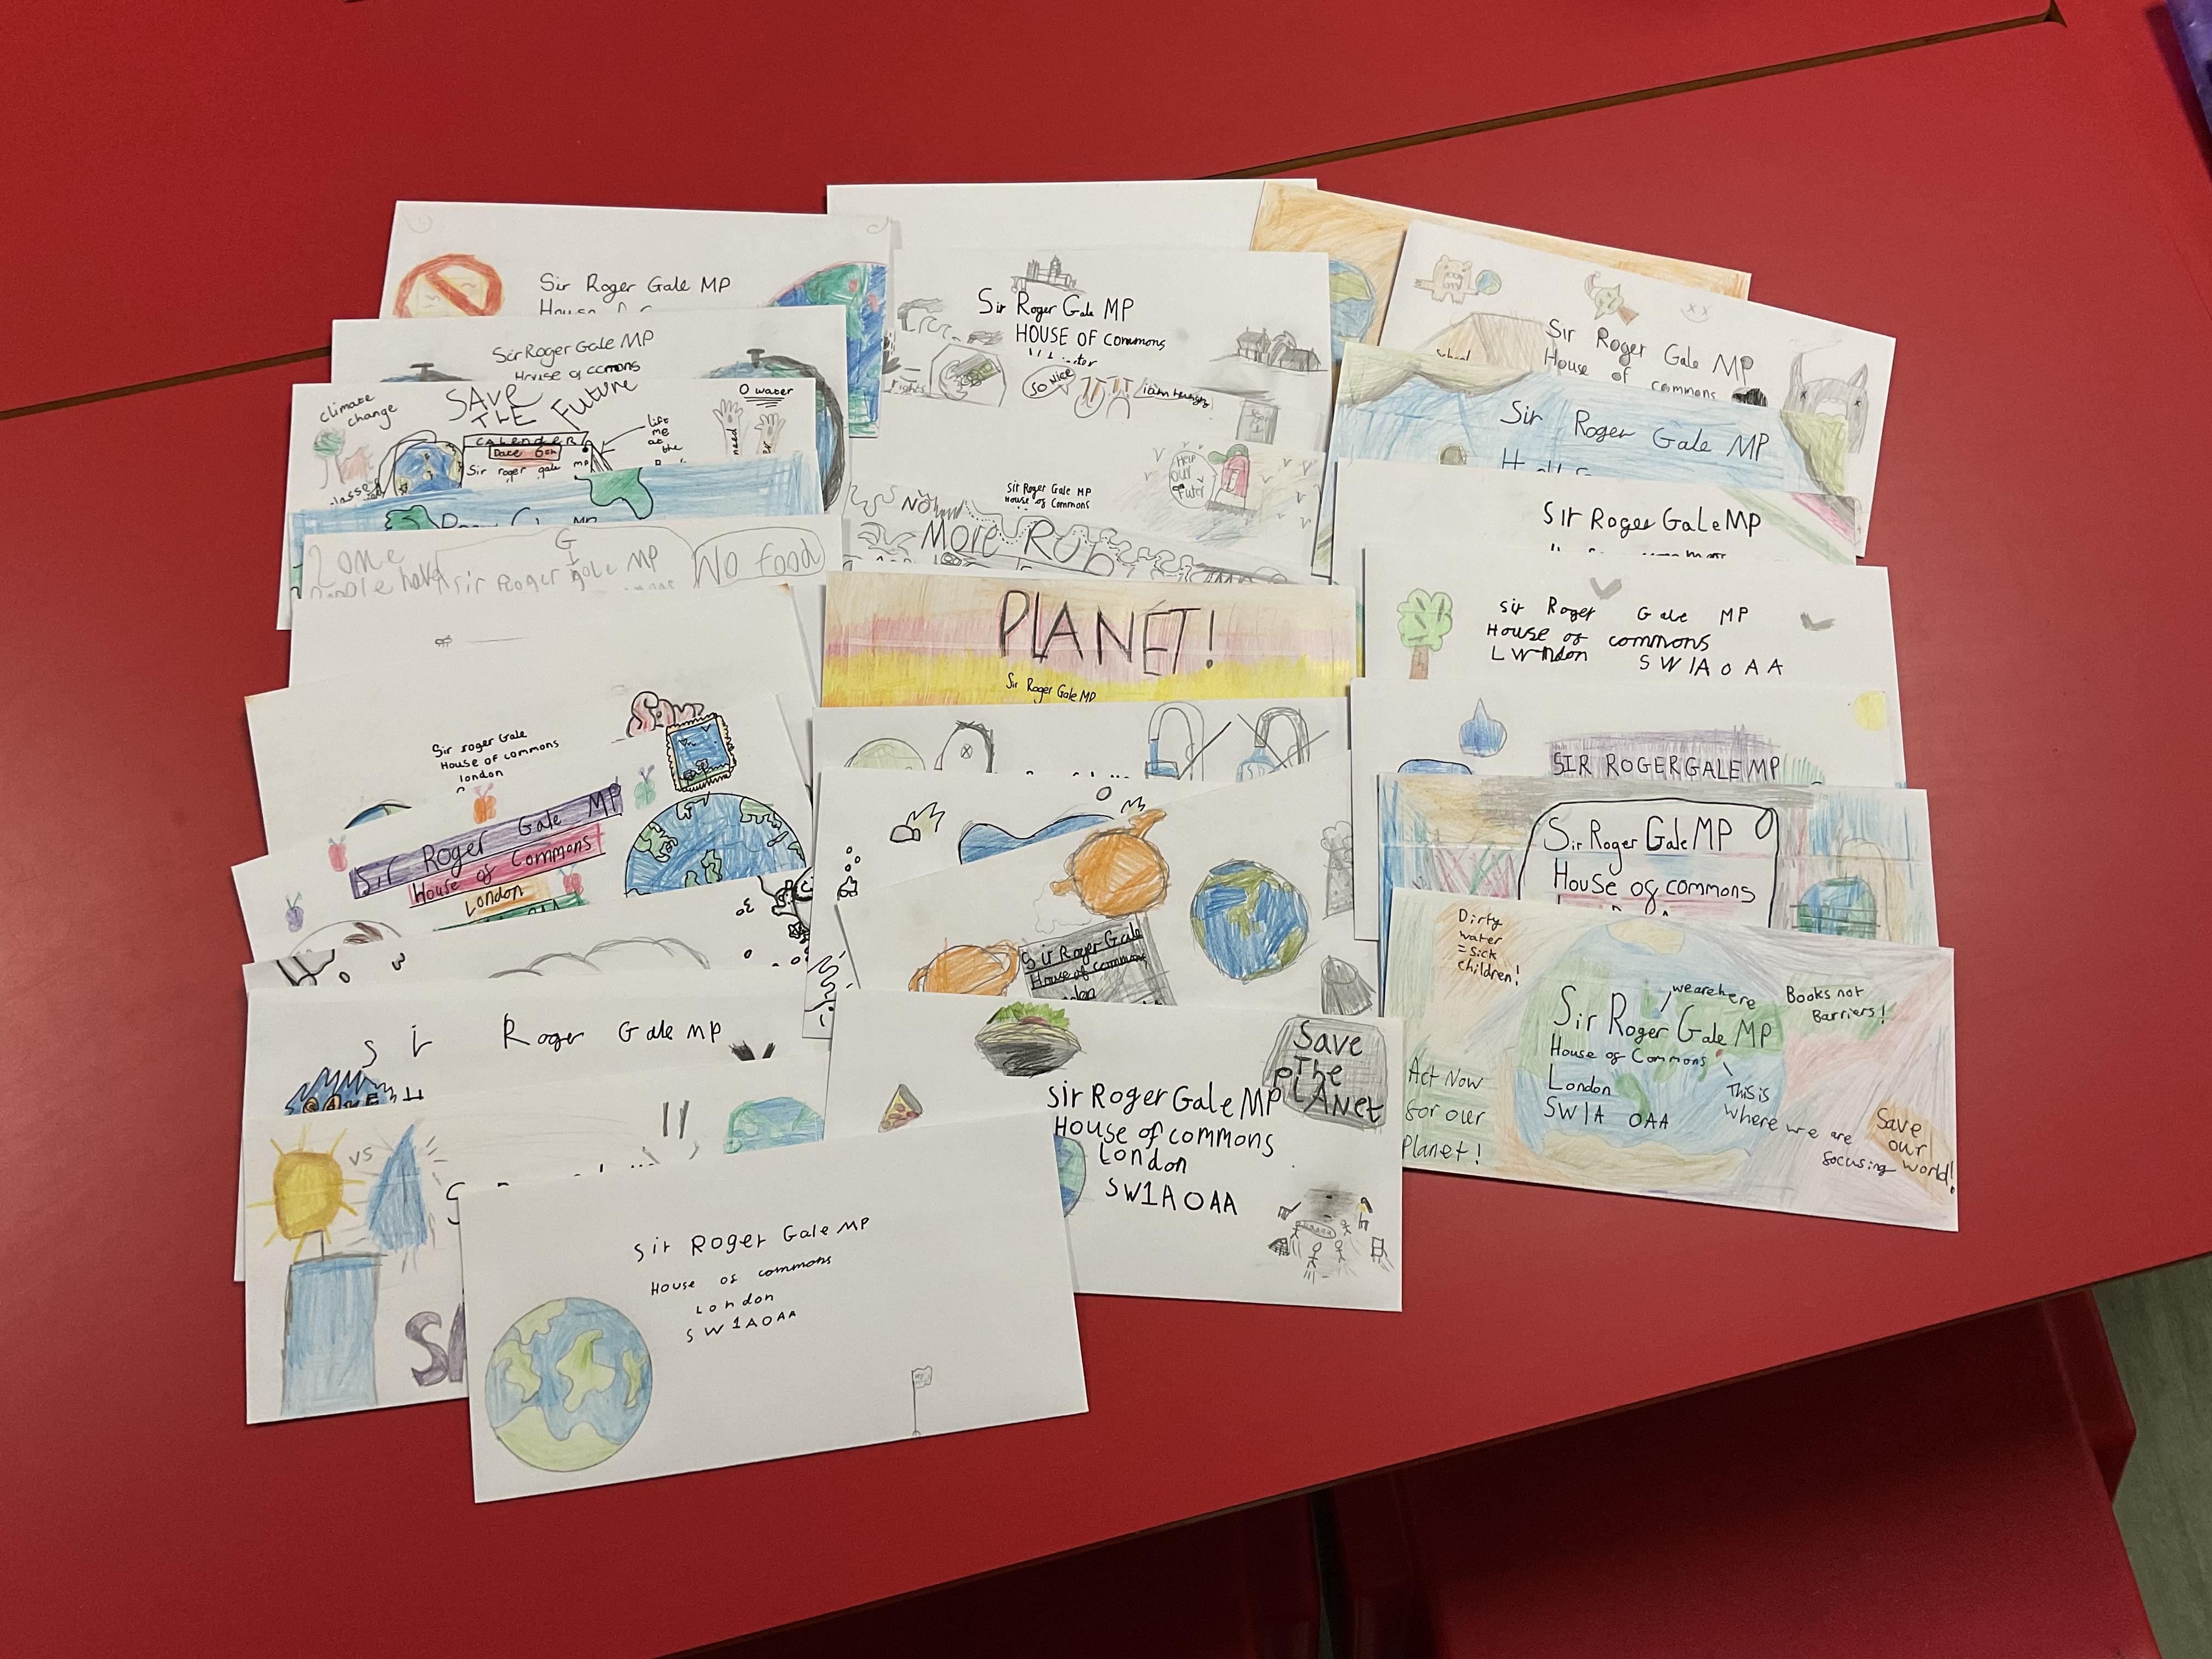 Sir Roger Gale MP
Sir Roger Gale MP
House of commons
climate change
SAVE
THE Future
0 water
CALENDER
Sir roger gale MP
lift
me
at
the
need
people have
Sir Roger Gale MP
No food
Sir roger Gale
House of commons
london
Save
Sir Roger Gale MP
House of Commons
London
Sir Roger Gale MP
vs
Sir Roger Gale MP
House of commons
London
SW1A0AA
Sir Roger Gale MP
HOUSE OF commons
rights
So NICE
Help
our
Sir Roger Gale MP
House of Commons
No
More
PLANET!
Sir Roger Gale MP
Sir Roger Gale
House of commons
Save
The
PLANet
Sir Roger Gale MP
House of commons
London
SW1A0AA
Sir Roger Gale MP
House of commons
Sir Roger Gale MP
Sir Roger Gale MP
Sir Roger Gale MP
House of commons
SW1A0AA
SIR ROGER GALE MP
Sir Roger Gale MP
House of commons
Dirty
water
= sick
children!
we are here
Books not
Barriers!
Sir Roger Gale MP
House of Commons
London
SW1A 0AA
This is
where we are
focusing
Act Now
for our
Planet!
Save
our
world!